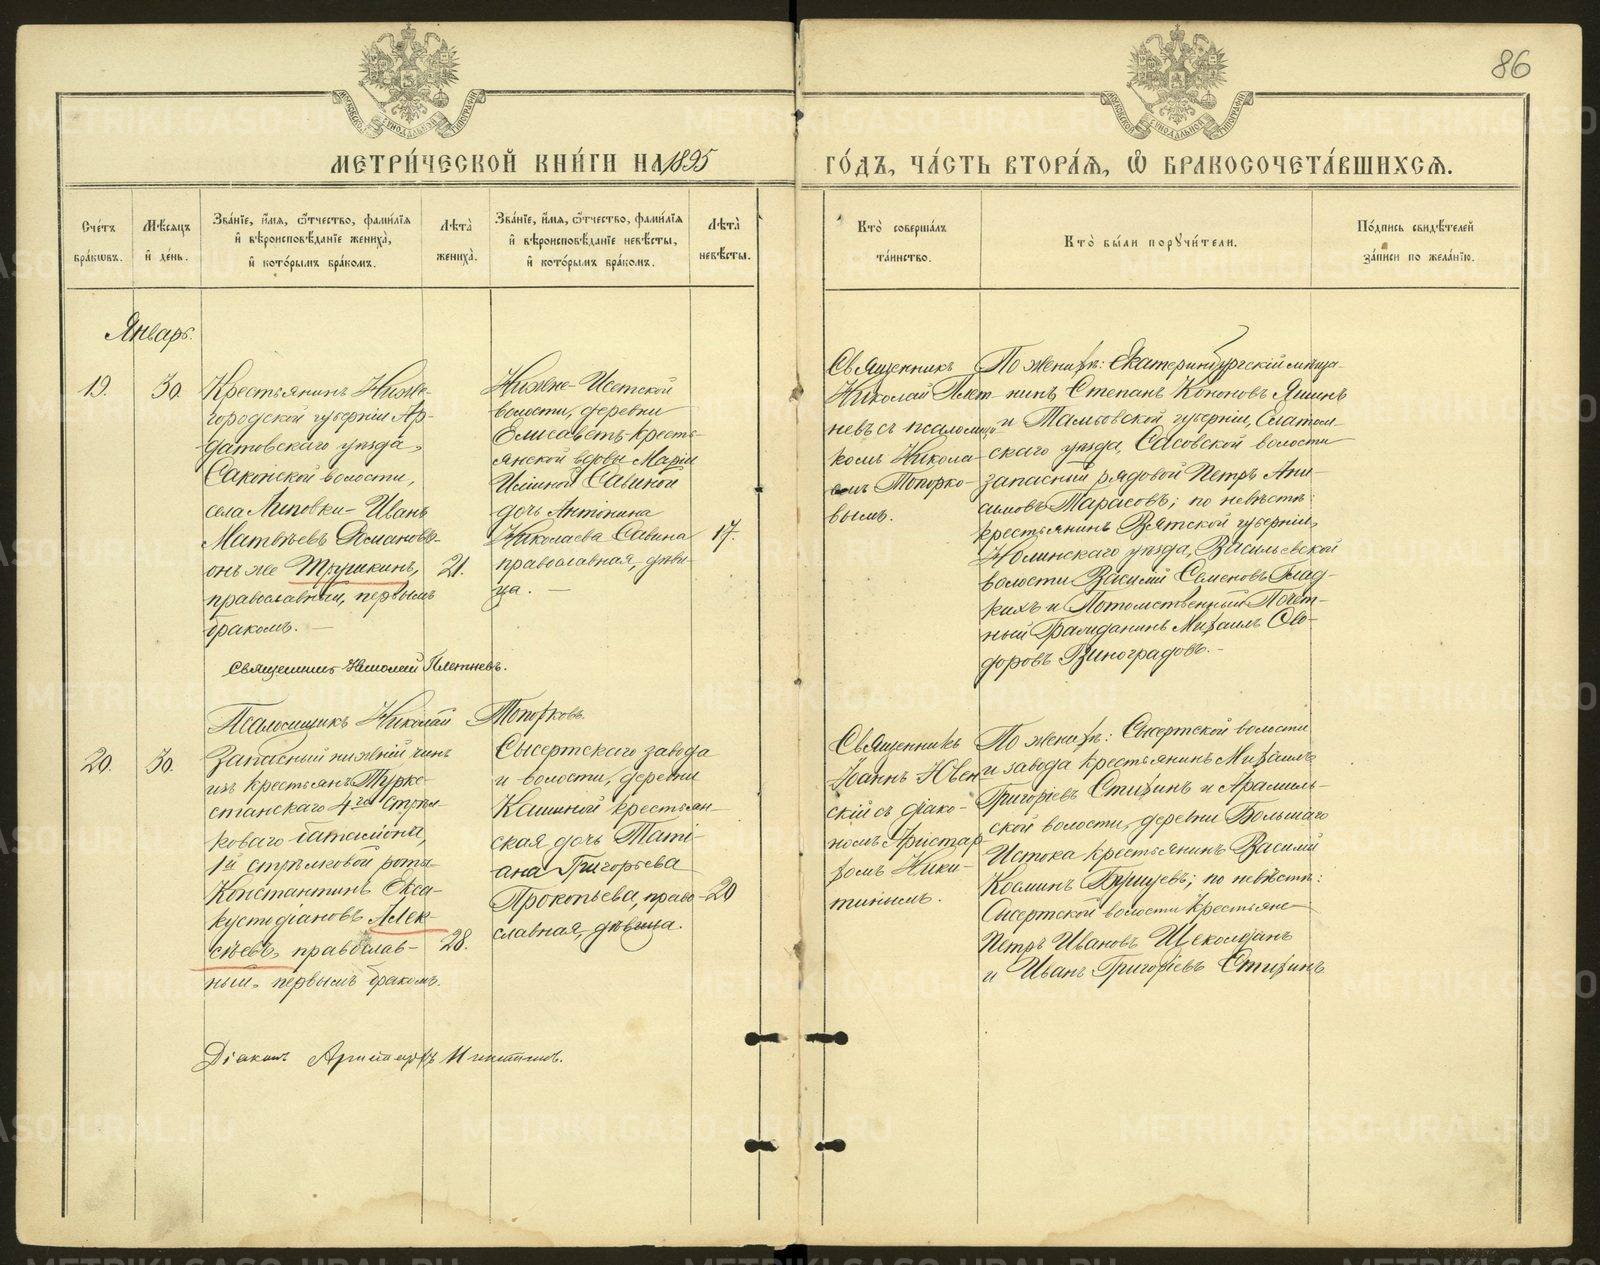 86
МЕТРИ́ЧЕСКОЙ КНИ́ГИ НА 1895
ГО́ДЪ, ЧА́СТЬ ВТОРА́Я, Ѡ҆ БРАКОСОЧЕТА́ВШИХСЯ.
Сче́тъ бра́кѡвъ.
Мѣ́сяцъ и҆ де́нь.
Зва́нїе, и҆́мя, ѻ҆́тчество, фами́лїя и҆ вѣроисповѣ́данїе жениха̀, и҆ кото́рымъ бра́комъ.
Лѣ́та жениха̀.
Зва́нїе, и҆́мя, ѻ҆́тчество, фами́лїя и҆ вѣроисповѣ́данїе невѣ́сты, и҆ кото́рымъ бра́комъ.
Лѣ́та невѣ́сты.
Кто̀ соверша́лъ та́инство.
Кто̀ бы́ли поручи́тели.
По́дпись свидѣ́телей за́писи по жела́нїю.
Январь.
19.
30.
Крестьянинъ Ниже-
городской губерніи Ар-
датовскаго уѣзда,
Саконской волости,
села Липовки - Иванъ
Матвѣевъ Романовъ-
онъ же Трушкинъ,
православный, первымъ
бракомъ. —
21.
Нижне-Исетской
волости, деревни
Елисаветъ кресть-
янской вдовы Маріи
Савиной
дочь Антонина
Николаева Савина
православная, дѣви-
ца. —
17.
Священникъ
Николай Плет-
невъ съ псаломщи-
комъ Никола-
емъ Топорко-
вымъ.
По женихѣ: Екатеринбургскій мѣща-
нинъ Степанъ Кононовъ Яшинъ
и Тамбовской губерніи, Елатом-
скаго уѣзда, Сасовской волости
запасный рядовой Петръ Ани-
симовъ Тарасовъ; по невѣстѣ:
крестьянинъ Вятской губерніи,
Нолинскаго уѣзда, Васильевской
волости Василій Семеновъ Глад-
кихъ и Потомственный Почет-
ный Гражданинъ Михаилъ Ѳео-
доровъ Виноградовъ. -
Священникъ Николай Плетневъ.
Псаломщикъ Николай Топорковъ.
20.
30.
Запасный нижній чинъ
изъ крестьянъ Турке-
станскаго 4го Стрѣл-
коваго баталіона,
1й стрѣлковой роты
Константинъ Екса-
кустодіановъ Алек-
сѣевъ, православ-
ный, первымъ бракомъ.
28.
Сысертскаго завода
и волости, деревни
Кашиной крестьян-
ская дочь Таті-
ана Григорьева
Прокопьева, право-
славная, дѣвица.
20
Священникъ
Іоаннъ Ювен-
скій съ діако-
номъ Аристар-
хомъ Ники-
тинымъ.
По женихѣ: Сысертской волости
и завода крестьянинъ Михаилъ
Григоріевъ Стихинъ и Арамиль-
ской волости, деревни Большаго
Истока крестьянинъ Василій
Косминъ; по невѣстѣ:
Сысертской волости крестьяне
Петръ Ивановъ Щеколдинъ
и Иванъ Григоріевъ Стихинъ
Діаконъ Аристархъ Никитинъ.
METRIKI.GASO-URAL.RU